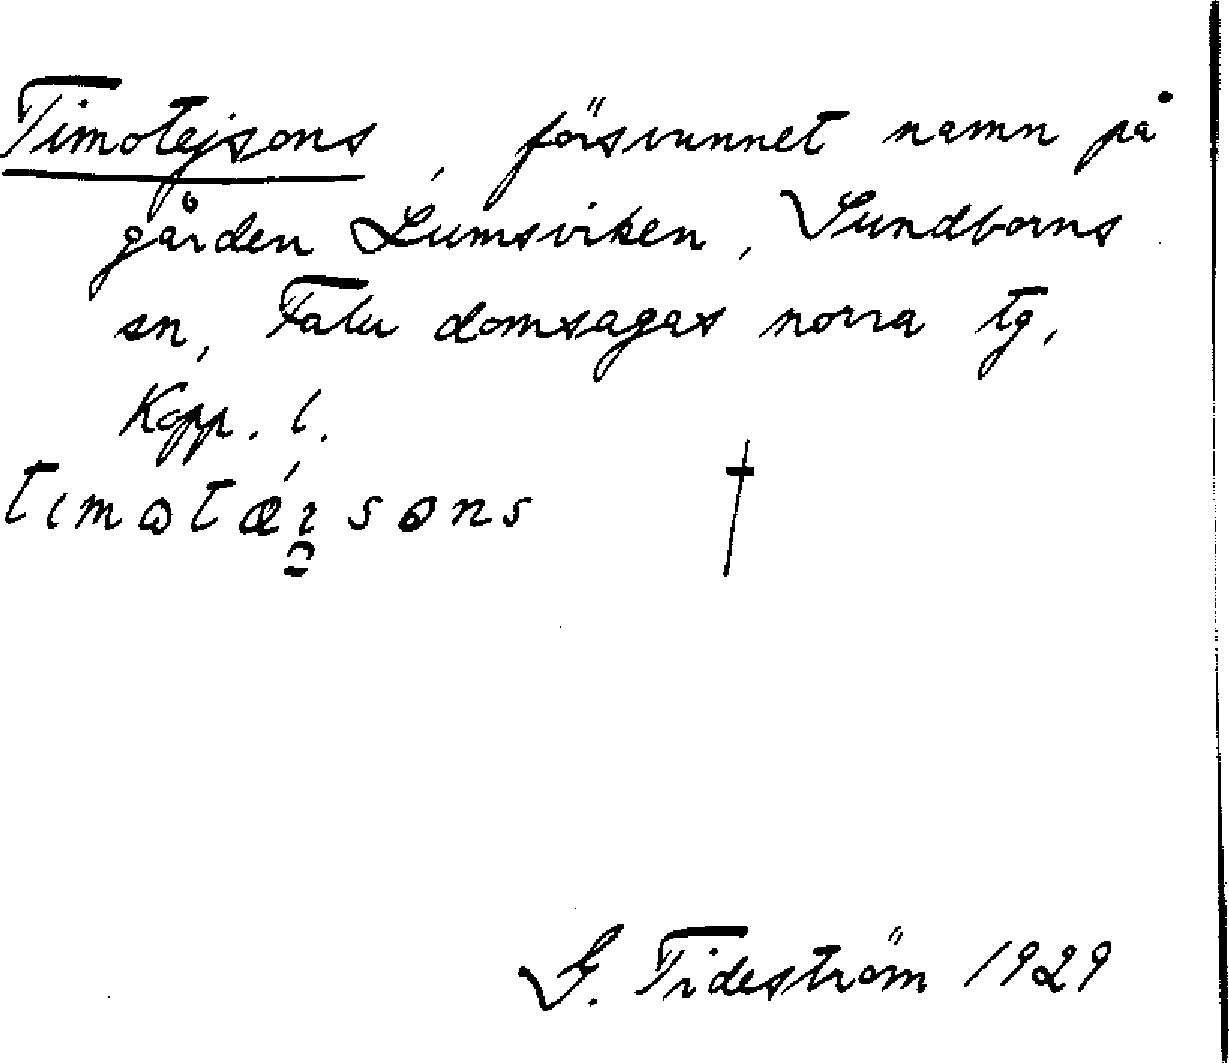 Timotejsons, försvunnet namn på
gården Lumsviken, Sundborns
sn, Falu domsagas norra tg,
Kopp. l.
†
G. Tideström 1929